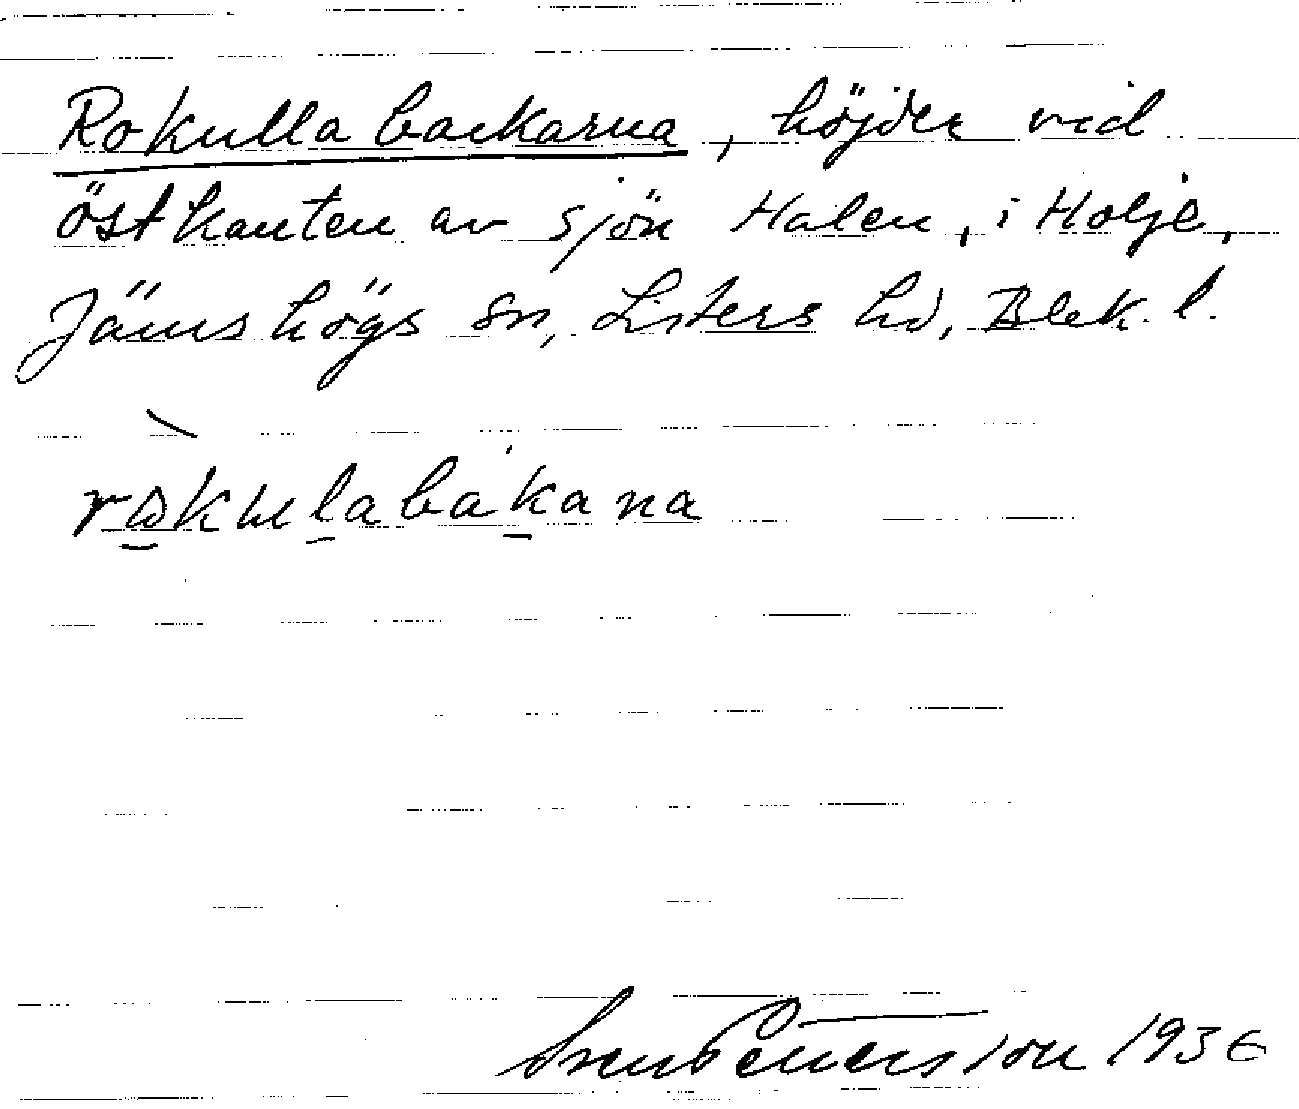 Rokulla backarna, höjder vid
östkanten av sjön Halen, i Holje,
Jämshögs sn, Listers hd, Blek. l.
rωkulabakana
Sven Pettersson 1936